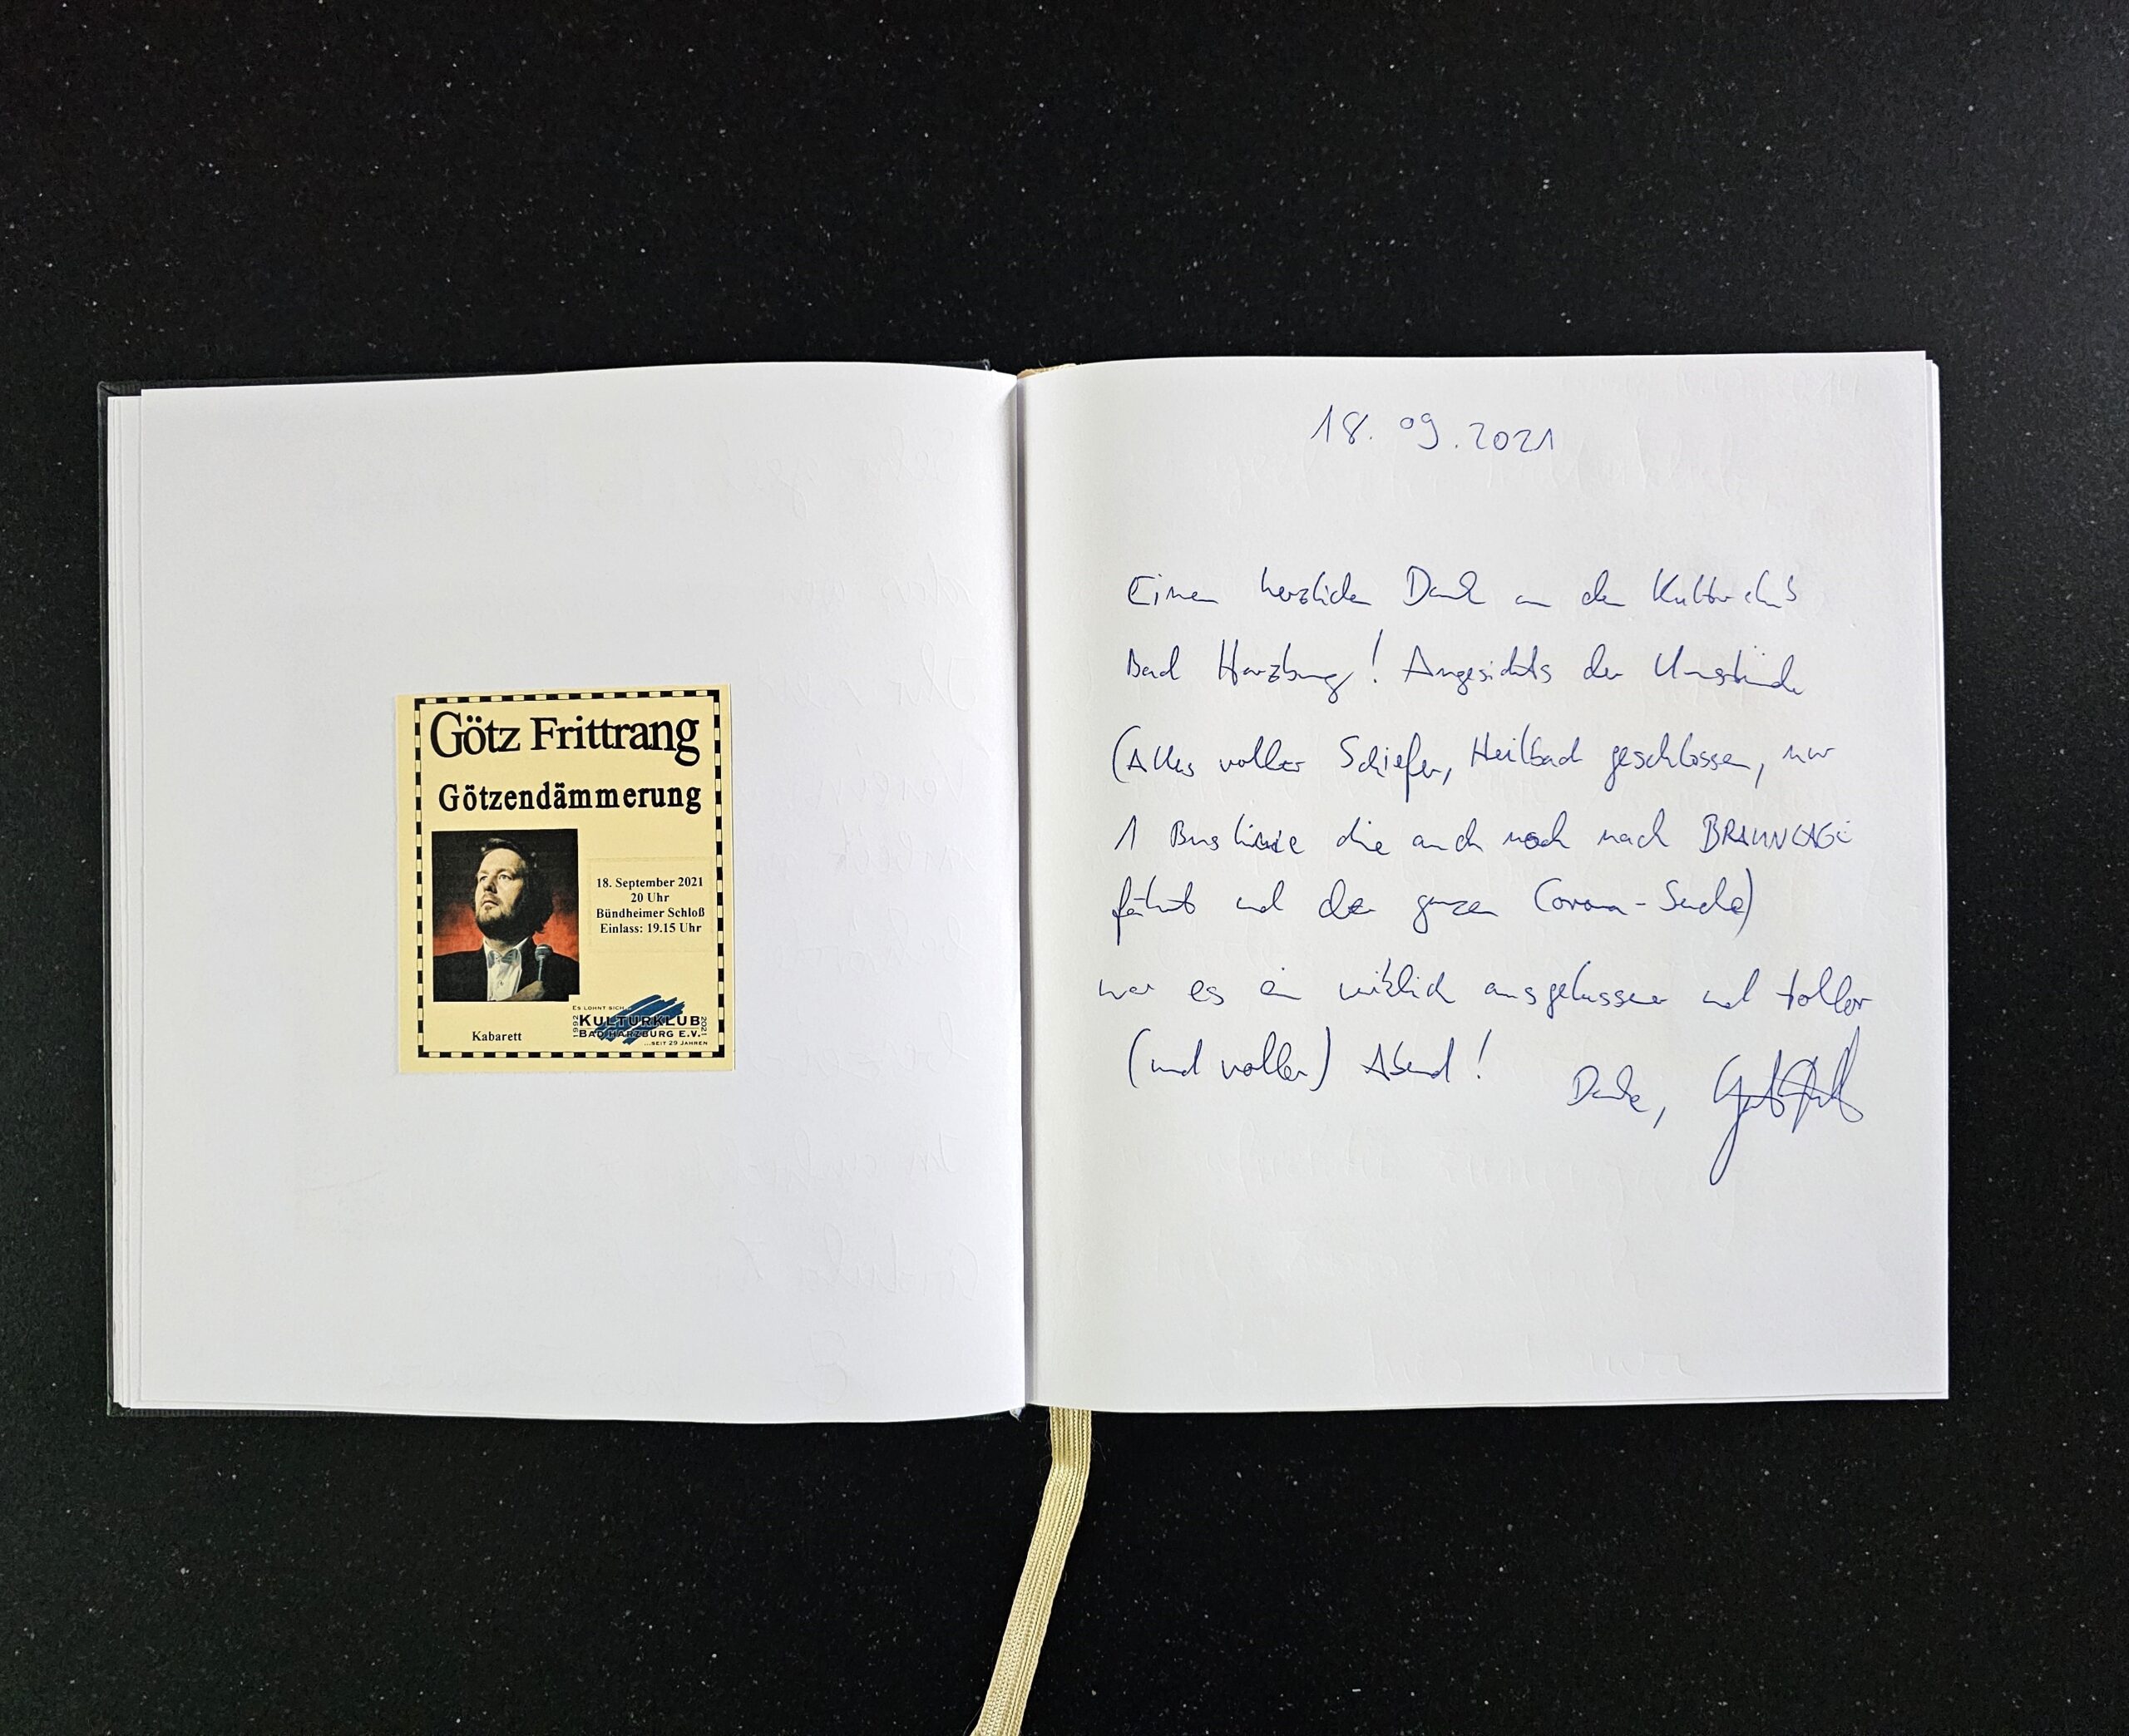 Götz Frittrang
Götzendämmerung
18. September 2021
20 Uhr
Bündheimer Schloß
Einlass: 19.15 Uhr
Kabarett
ES LOHNT SICH...
1992 KULTURKLUB 2021
BAD HARZBURG E.V.
...SEIT 29 JAHREN
18. 09. 2021
Einen herzlichen Dank an den Kulturclub
Bad Harzburg! Angesichts der Umstände
(Alles voller Schiefer, Heilbad geschlossen, nur
1 Buslinie die auch noch nach BRAUNLAGE
fährt und der ganzen Corona-Suche)
war es ein wirklich ausgelassener und toller
(und voller) Abend!
Danke,